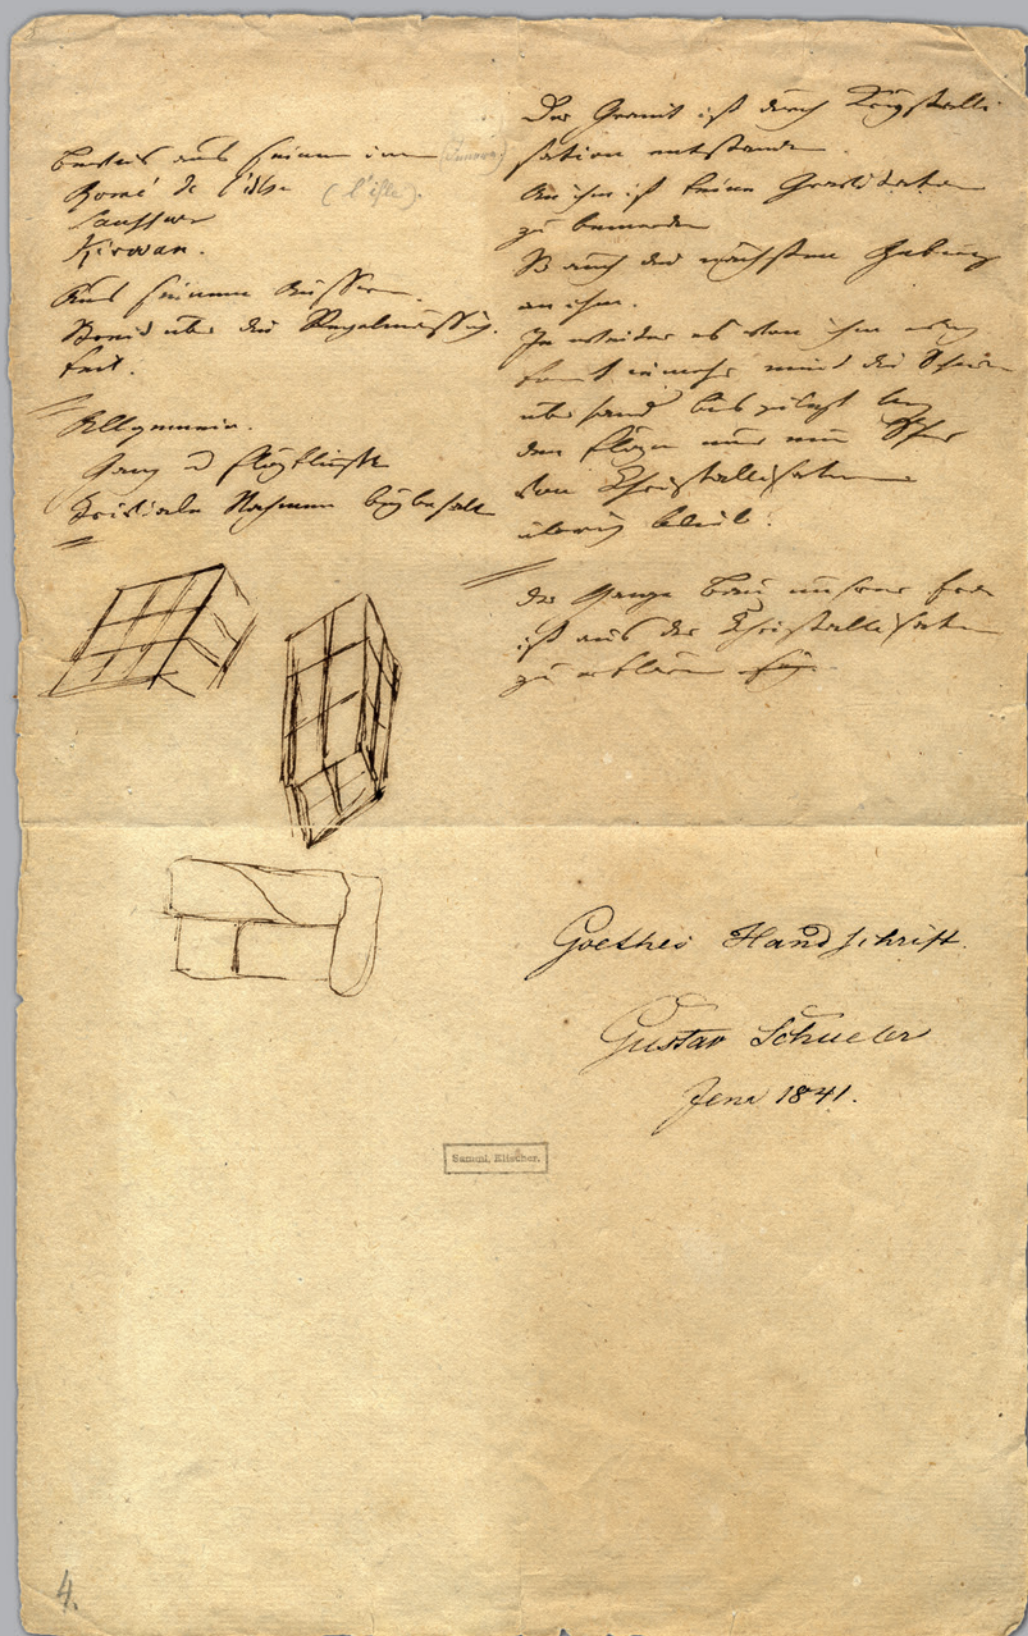 Beweis aus seinem innern
(Innern.)
Romé de l'isle
(l'isle).
Saussure
Kirwan.
Aus seinem äussern.
Streit über die Regelmässig
keit.
Allgemein.
Gang u Flözklüfte
Triviale Nahmen beybehalten
Der Granit ist durch Krystalli
sation entstanden.
An ihm ist keine
zu bemerken
So auch die nächsten Gebirge
an ihm.
Je weiter es von ihm weg
kommt
überhand bis zuletzt bey
den Flözen nur
von Christallisation
übrig bleibt.
der ganze Bau unsrer Erde
ist aus der Christallisation
zu erklären
Goethes Handschrift.
Gustav Schueler
Jena 1841.
Samml. Elischer.
4.